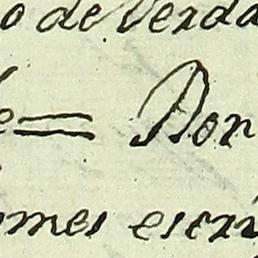 o de Verda
e = Por
omes escri